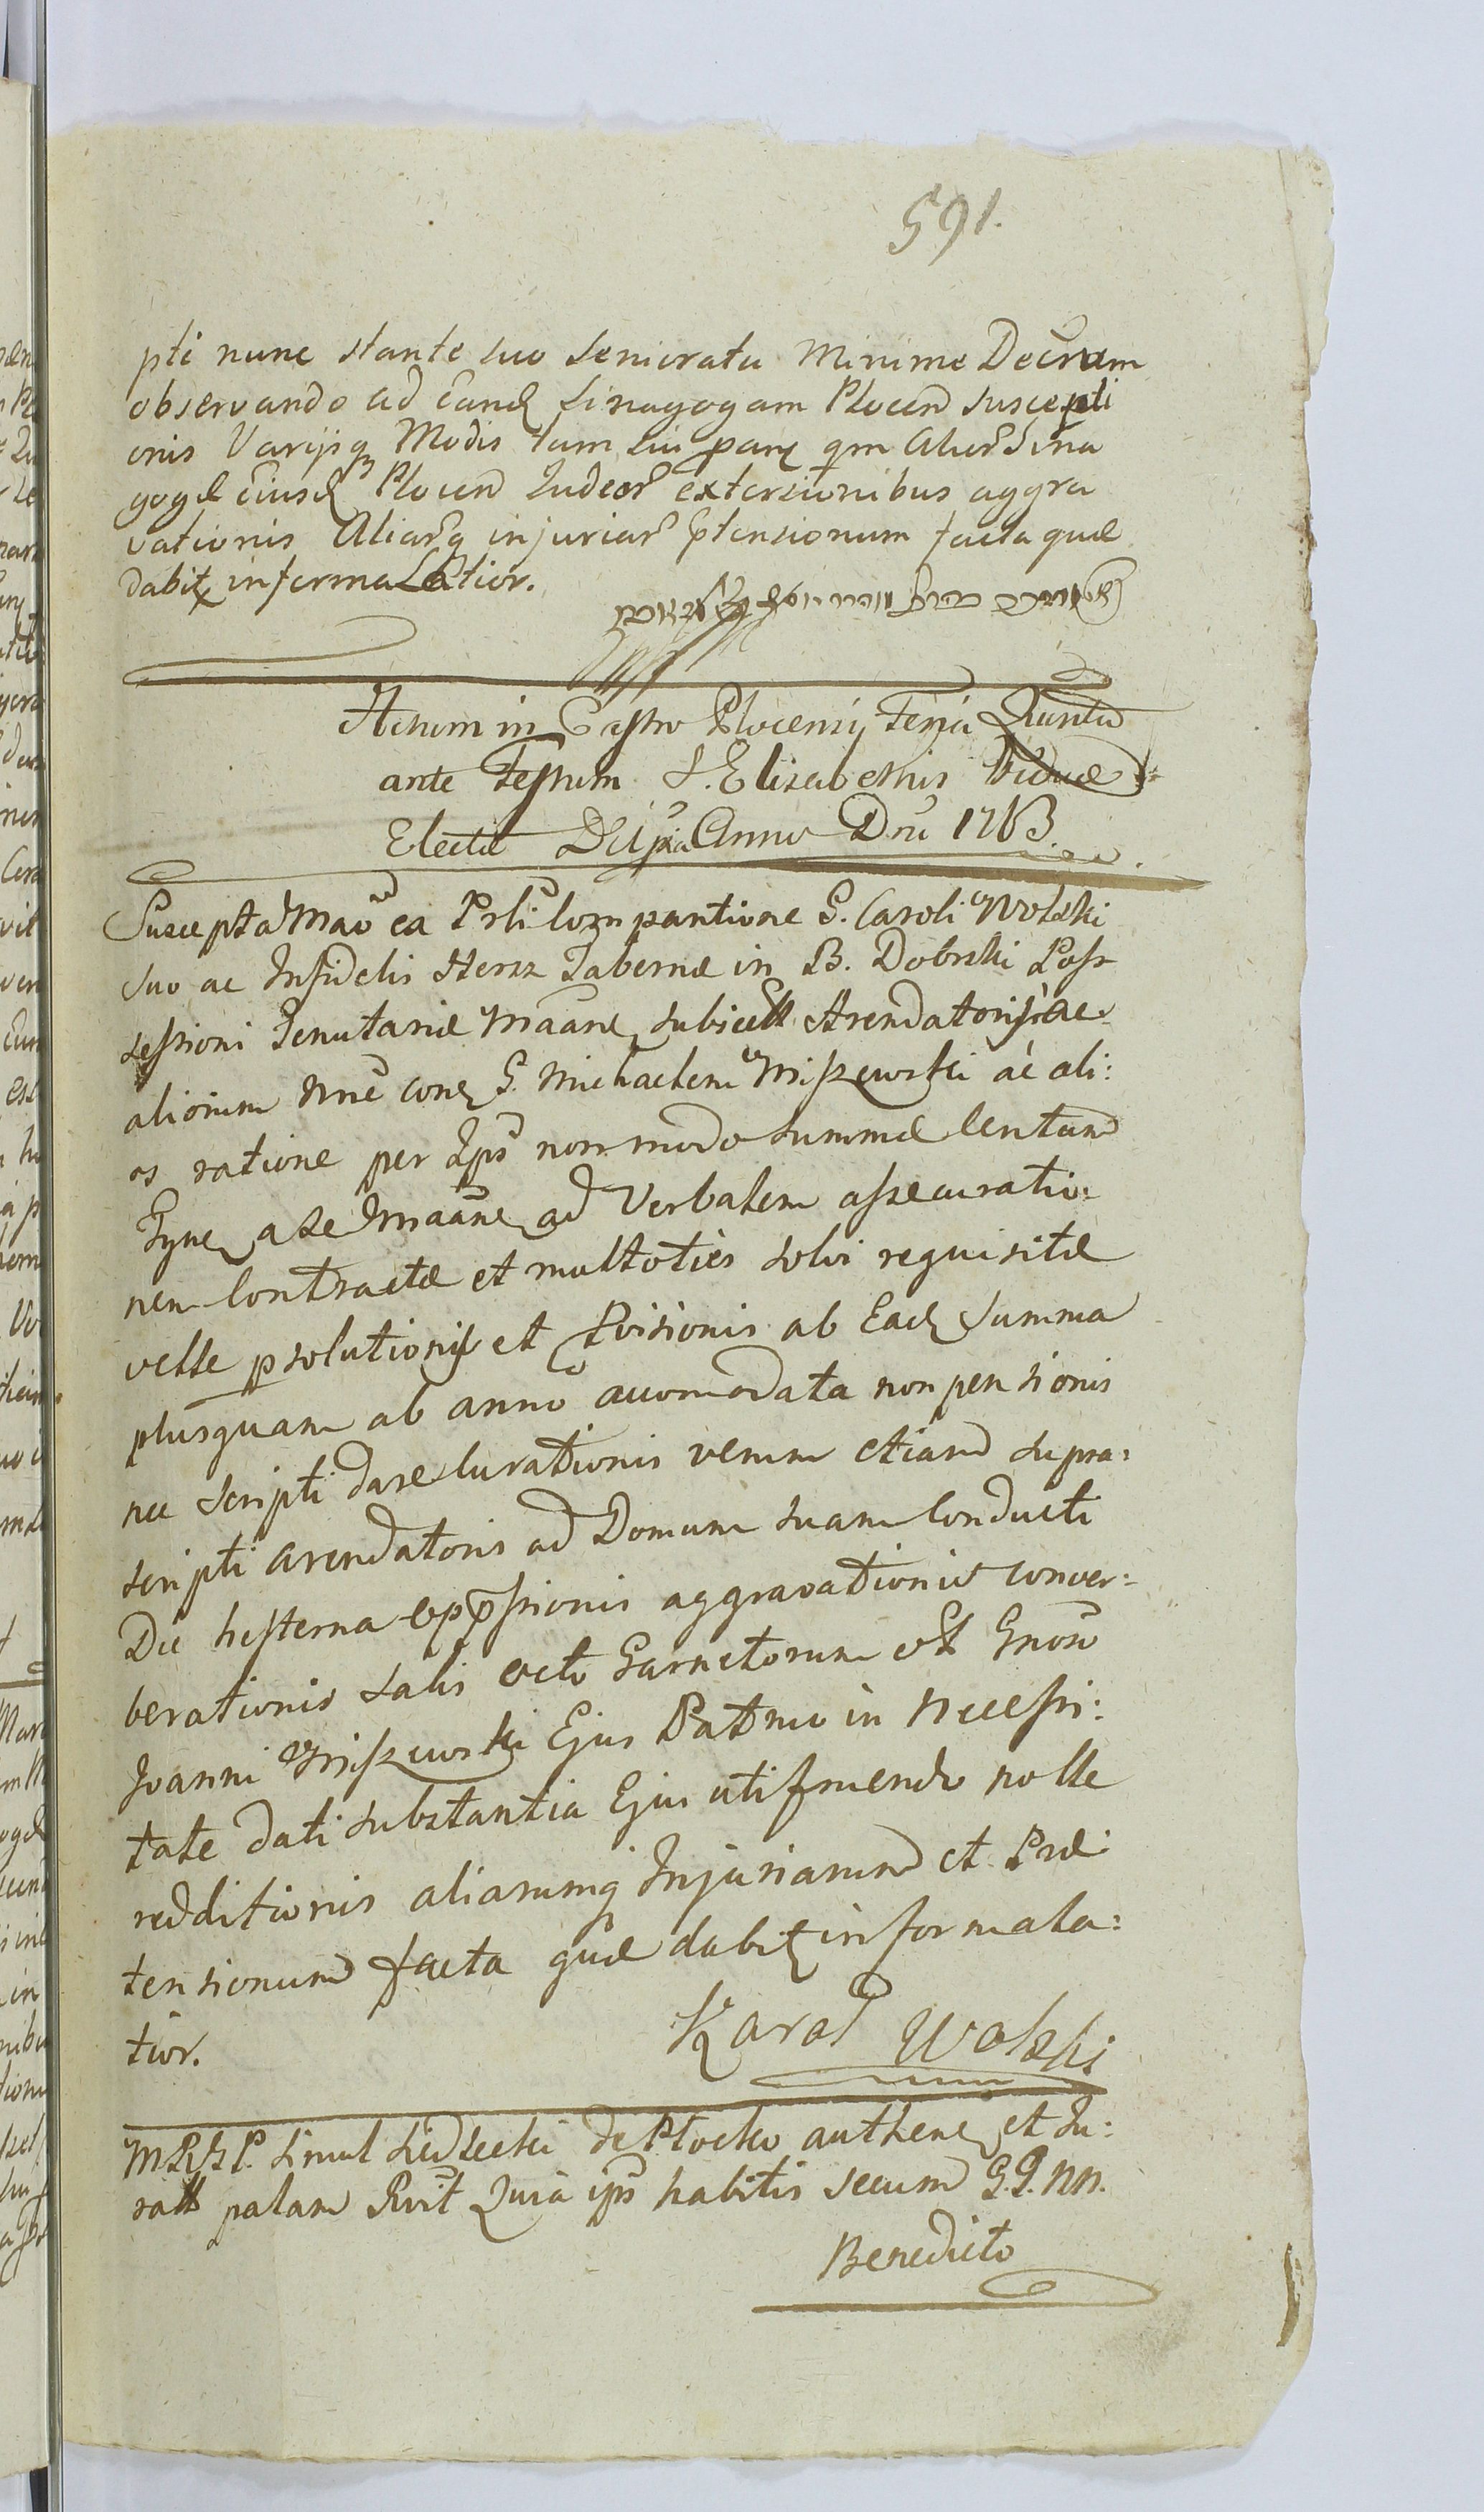 591.
pti nunc stante suo Senioratu Minime Decrum
observando ad Eand Sinagogam Plocen suscepti
onis Varijsq Modis tam sui parte qm alior Sina
gogæ Eiusd Plocen Judeor extorsionibus aggra
vationis Aliarq injuriar Ptensionum facta quæ
dabit informalatior.
Actum in Castro Plocensi Feria Quinta
ante Festum S. Elisabethis Viduæ
Electæ Dei Anno Dni 1763.
Suscepta Mao ea Prli Comparitione G. Caroli Wolski
suo ac Infidelis Herszk Tabernæ in B. Dobrski Pos
sessioni Tenutariæ Maane subiect Arendatoris ac
aliorum Nne con G. Michaelem Miszewski ac ali:
os ratione per Ips non modo summæ Centum
Tyne a se Maane ad Verbalem assecuratio:
nem Contractæ et multoties solvi requisitæ
velle psolutionis et Pvisionis ab Ead Summa
plusquam ab anno accomodata non pensionis
nec scripti dare curationis verum etiam supra:
scripti arendatoris ad Domum suam Conducti
Die hesterna oppssionis aggravationis conver:
berationis salis octo Garnetorum et Gnoso
Joanni Miszewski Ejus Patruo in necessi:
tate dati substantia Ejus utifruendo nolle
redditionis aliarumq Injuriarum et Præ:
tensionum facta quæ dabit informala:
tior.
Karol Wolski
M.R.S.P. simul Siedlecki de Plocko authen et Ju:
ratt palam Rvit Quia ips habitis secum G.G. NN.
Benedicto